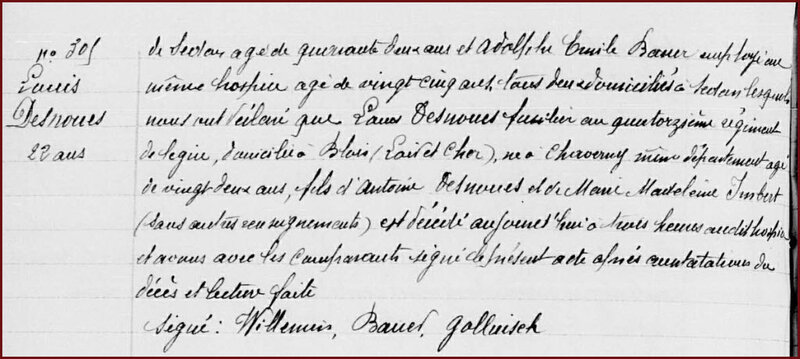 no 305
Louis
Desnoues
22 ans
de Sedan agé de quarante deux ans et Adolphe Emile Bauer employé au
même hospice agé de vingt cinq ans, tous deux domiciliés à Sedan lesquels
nous ont déclaré que Louis Desnoues fusilier au quatorzième régiment
de ligne, domicilié à Blois (Loir et Cher), né à Cheverny même département agé
de vingt deux ans, fils d'Antoine Desnoues et de Marie Madeleine Imbert
(sans autres renseignements) est décédé aujourd'hui à trois heures audit hospice
et avons avec les comparants signé le présent acte après constatations du
décès et lecture faite
Signé: Willemin, Bauer, Gollnisch